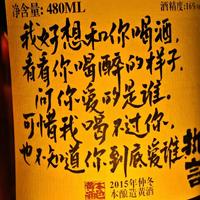 净含量:480ML 酒精度:16%
我好想和你喝酒,
看看你喝醉的样子,
问你爱的是谁.
可惜我喝不过你,
也不知道你到底爱谁.
2015年仲冬
本酿造黄酒